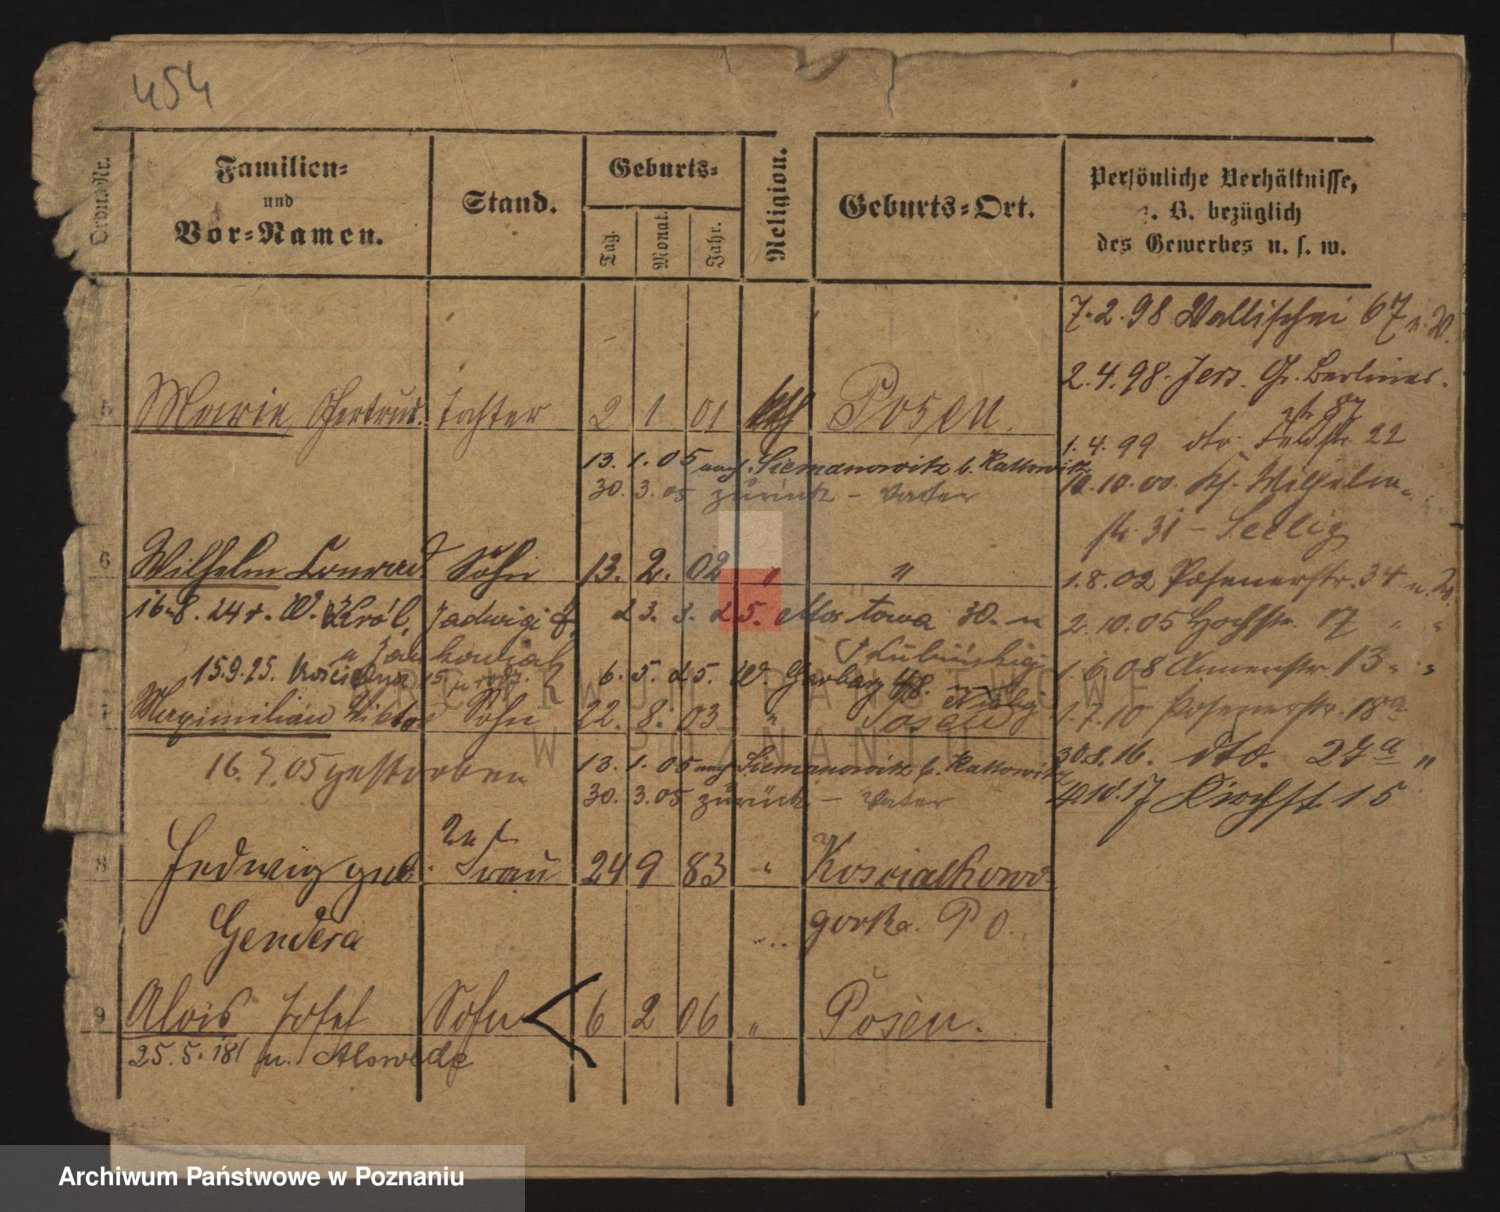 454
Ordn. Nr.
Familien-
und
Vor-Namen.
Stand.
Geburts-
Tag.
Monat.
Jahr.
Religion.
Geburts-Ort.
Persönliche Verhältnisse,
z. B. bezüglich
des Gewerbes u. s. w.
7.2.98 Wallischei 67
2.4.98 Jers. Gr. Berliner-
str 87
5 Marie Gertrud. Tochter 2 1 01 kth Posen.
1.4.99 dto Feldstr 22
13. 1. 05 nach Siemanowitz b. Kattowitz
10.10.00. Wilhelm-
30. 3. 05 zurück – Vater
str. 31 –
6 Wilhelm Conrad Sohn 13. 2. 02 " "
1.8.02 Posenerstr. 34
16.8.24 W. Król. Jadwigi 23. 3. 25. Mostowa 30.
2.10.05 Hochstr. 17 " "
15.9.25. 6. 5. 25. W. Garbary 48.
1.6.08 Annenstr. 13 " "
7 Maximilian Viktor Sohn 22. 8. 03 " Posen
1.7.10 Posenerstr. 18a
16. 7. 05 gestorben 13. 1. 05 nach Siemanowitz b. Kattowitz
30.8.16. dto. 27a "
30. 3. 05 zurück – Vater
Kirchst 15
8 Hedwig geb. Frau 24 9 83 " Kosciallkowo
Gendera gorka. PO.
9 Alois Josef Sohn 6 2 06 " Posen.
25.5.18 n.
ARCHIWUM PAŃSTWOWE
W POZNANIU
Archiwum Państwowe w Poznaniu